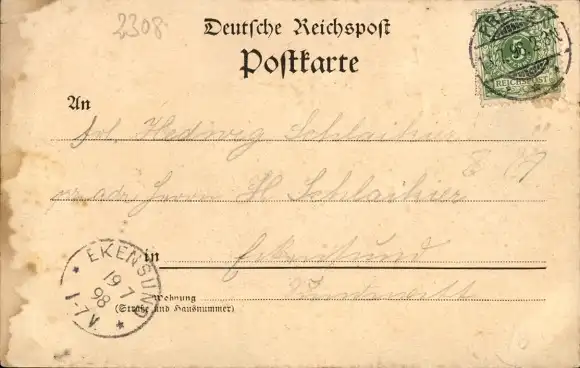 2308
Deutsche Reichspost
Postkarte
5
REICHSPOST
An
Frl. Hedwig Schlaikier
pr adr Herrn H Schlaikier
in Ekensund
EKENSUND
19 7
98
1-7V.
Wohnung
(Straße und Hausnummer)